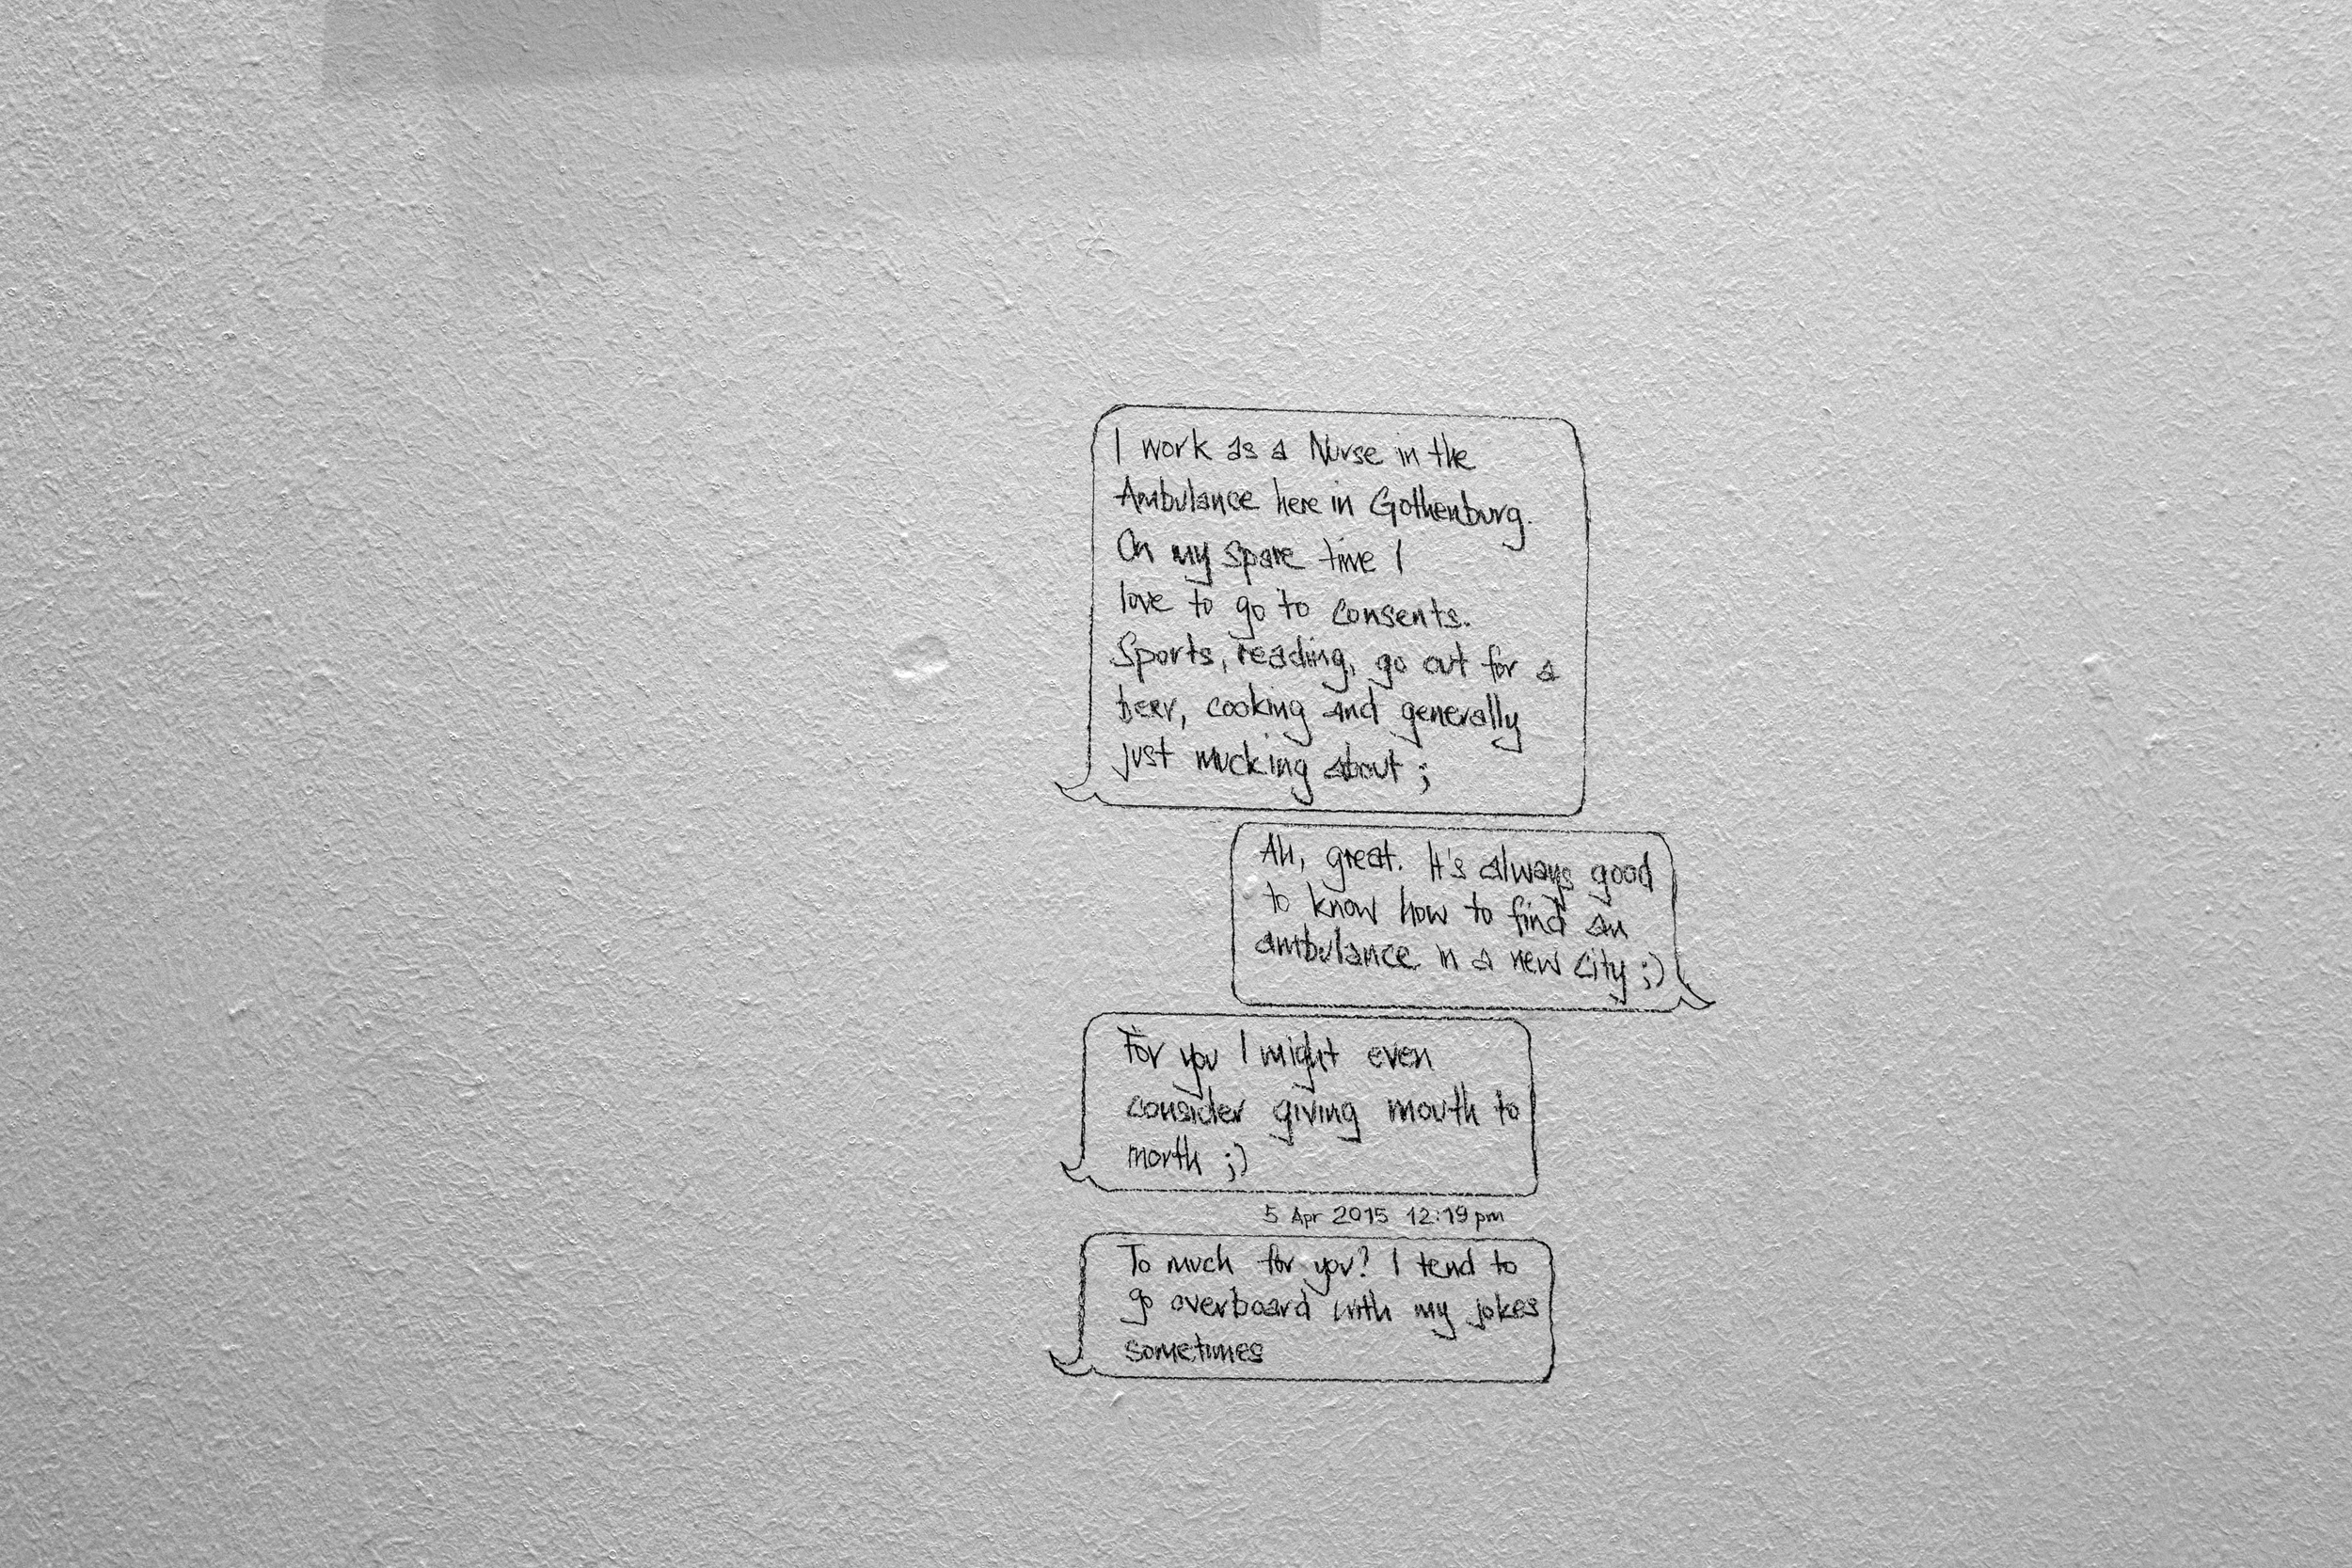 I work as a Nurse in the
Ambulance here in Gothenburg.
On my spare time I
love to go to consents.
Sports, reading, go out for a
beer, cooking and generally
just mucking about ;
Ah, great. It's always good
to know how to find an
ambulance in a new city ;)
For you I might even
consider giving mouth to
morth ;)
5 Apr 2015 12:19 pm
To much for you? I tend to
go overboard with my jokes
sometimes